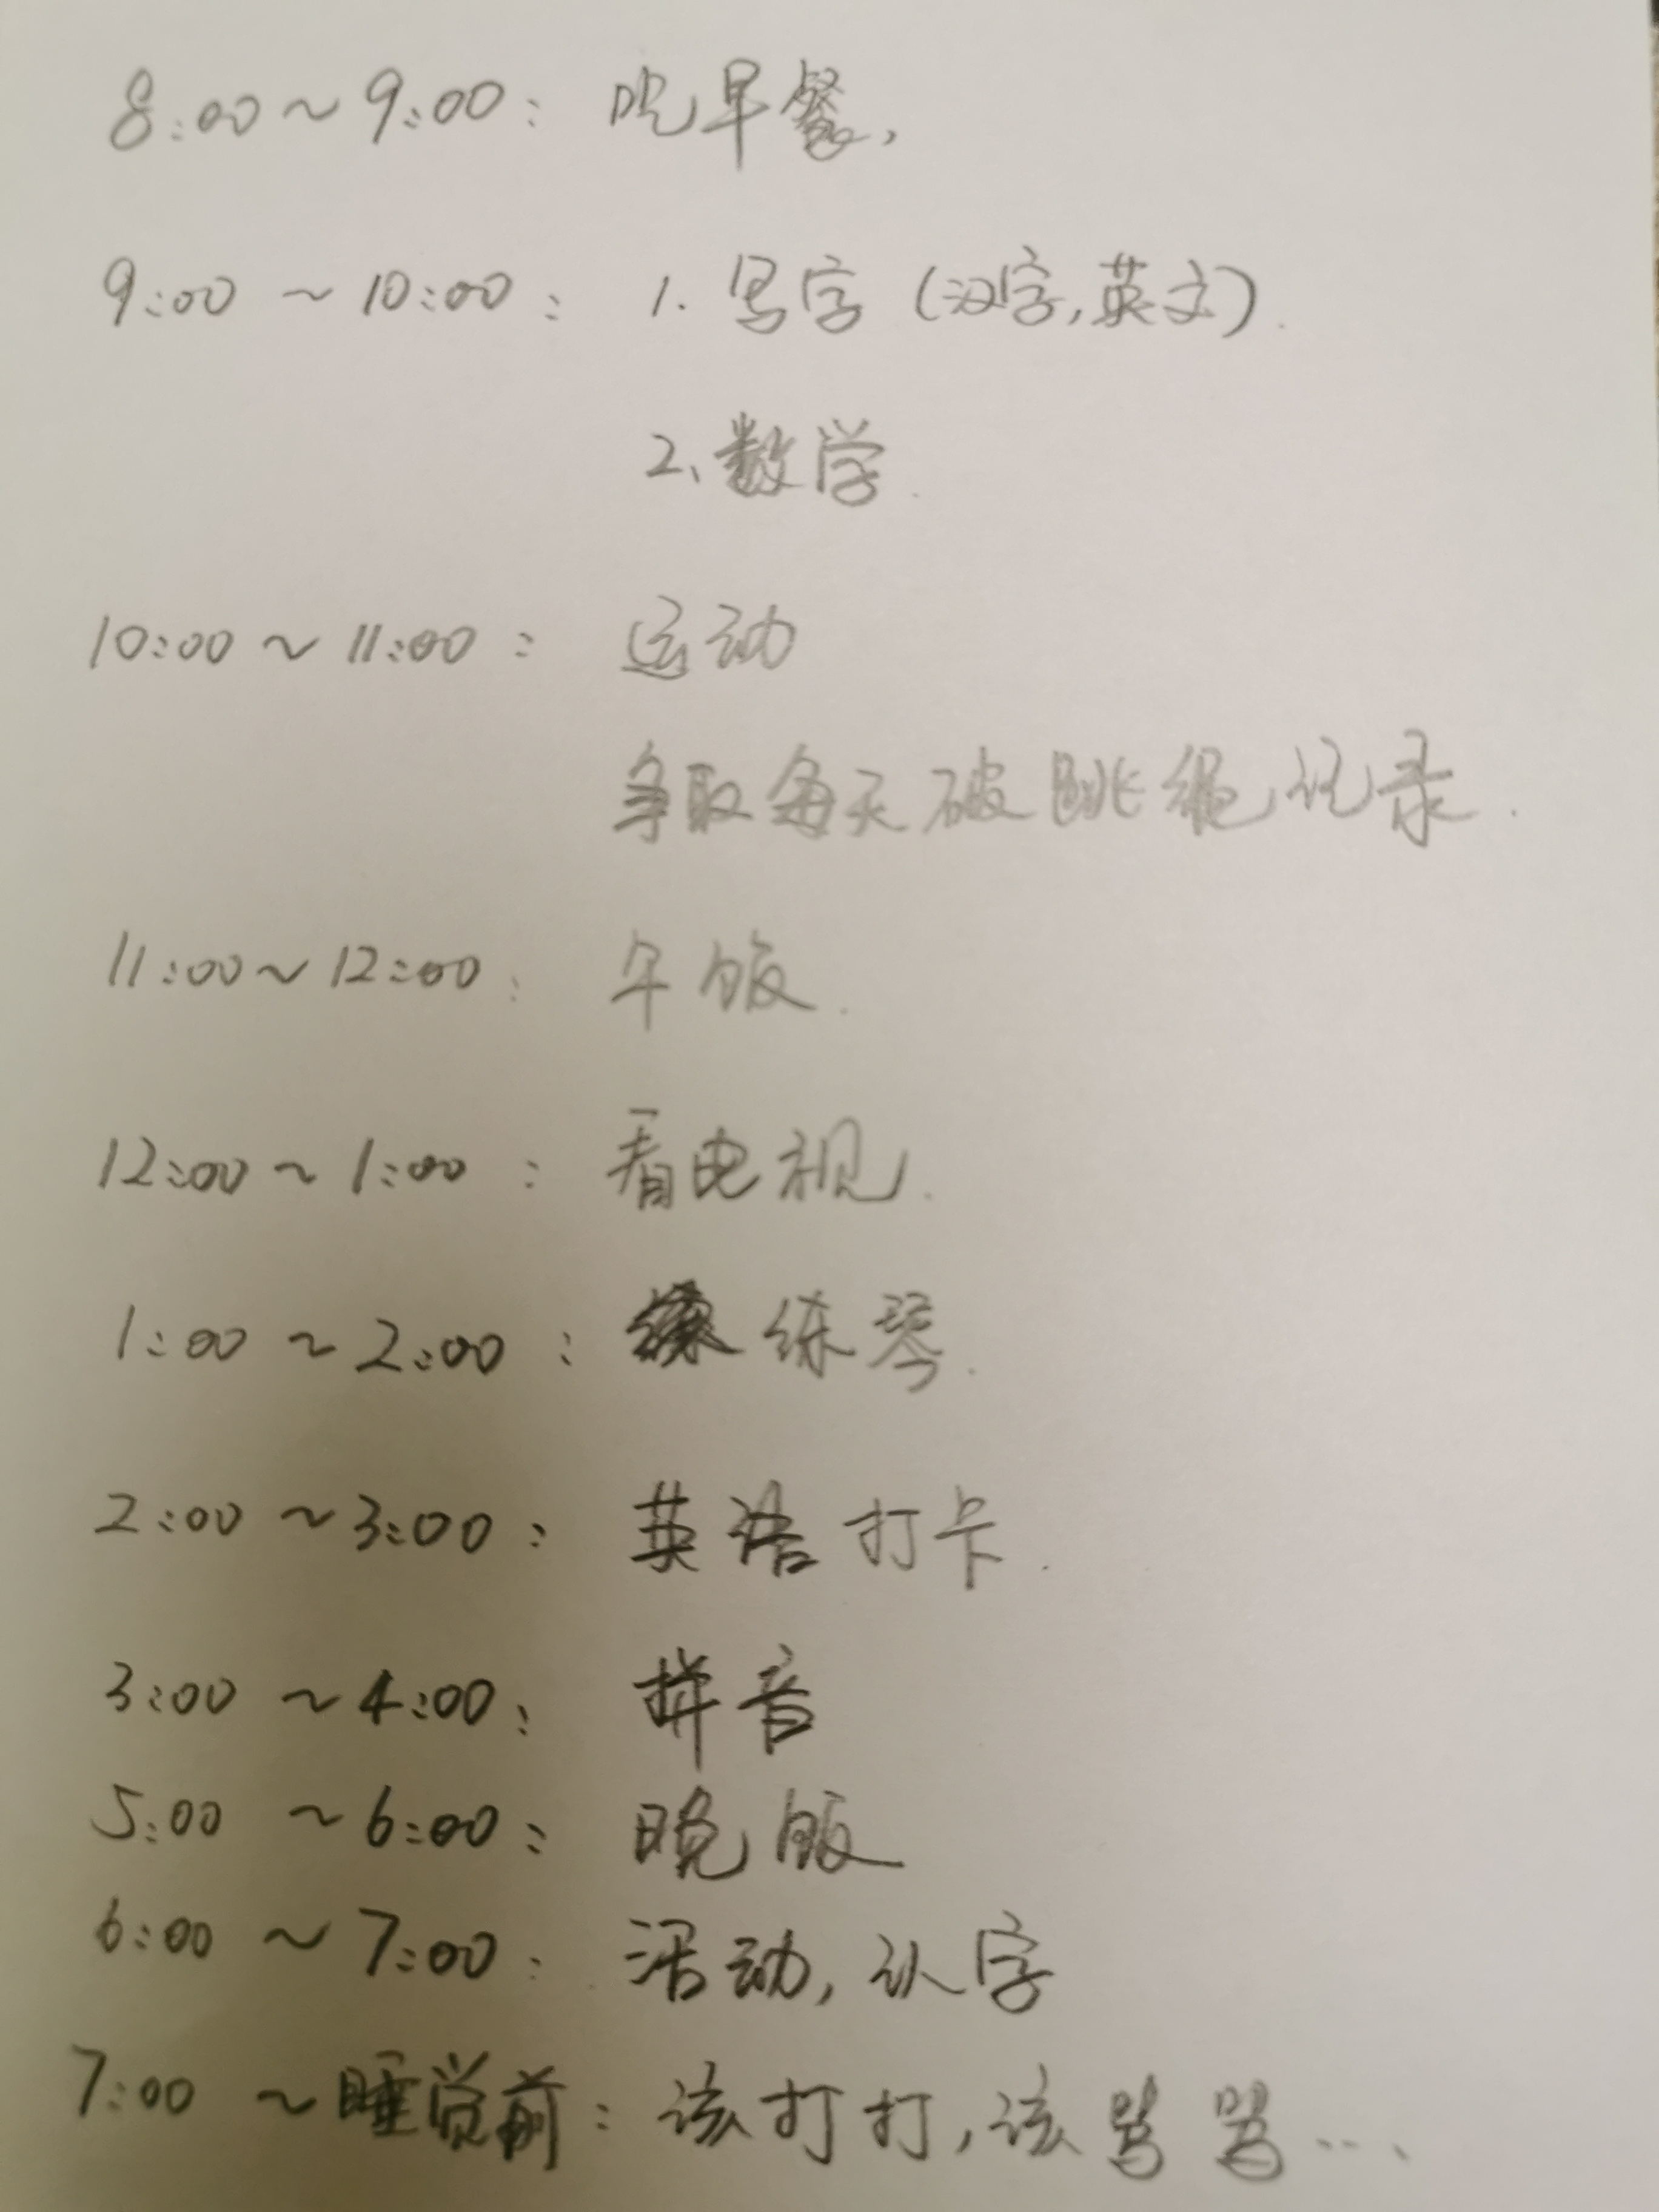 8:00~9:00: 吃早餐,
9:00 ~10:00: 1. 写字 (汉字,英文).
2、数学.
10:00 ~ 11:00: 运动
争取每天破跳绳记录.
11:00~12:00: 午饭.
12:00~1:00: 看电视.
1:00 ~2:00: 练琴.
2:00 ~3:00: 英语打卡.
3:00 ~4:00: 拼音
5:00 ~6:00: 晚饭
6:00 ~7:00: 活动, 认字
7:00 ~睡觉前: 该打打, 该骂骂……